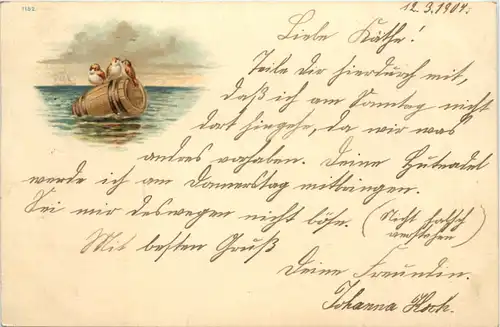 1182
12.3.1904.
Liebe Käthe!
Teile Dir hierdurch mit,
daß ich am Sonntag nicht
dort hingehe, da wir was
andres vorhaben. Deine Hutnadel
werde ich am Donnerstag mitbringen.
Sei mir deswegen nicht böse. (Nicht falsch
verstehen)
Mit besten Gruß
Deine Freundin.
Johanna